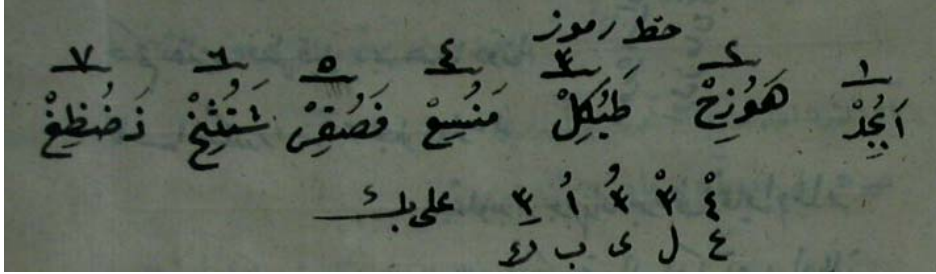 خط رموز
١ ٢ ٣ ٤ ٥ ٦ ٧
اَبُجِدْ هَوُزِحْ طَيُكِلْ مَنُسِعْ فَصُقِرْ شَتُثِخْ ذَضُظِغْ
٤ْ ٣ْ ٣ُ ١ُ ٣ِ علی بك
ع ل ی ب ك